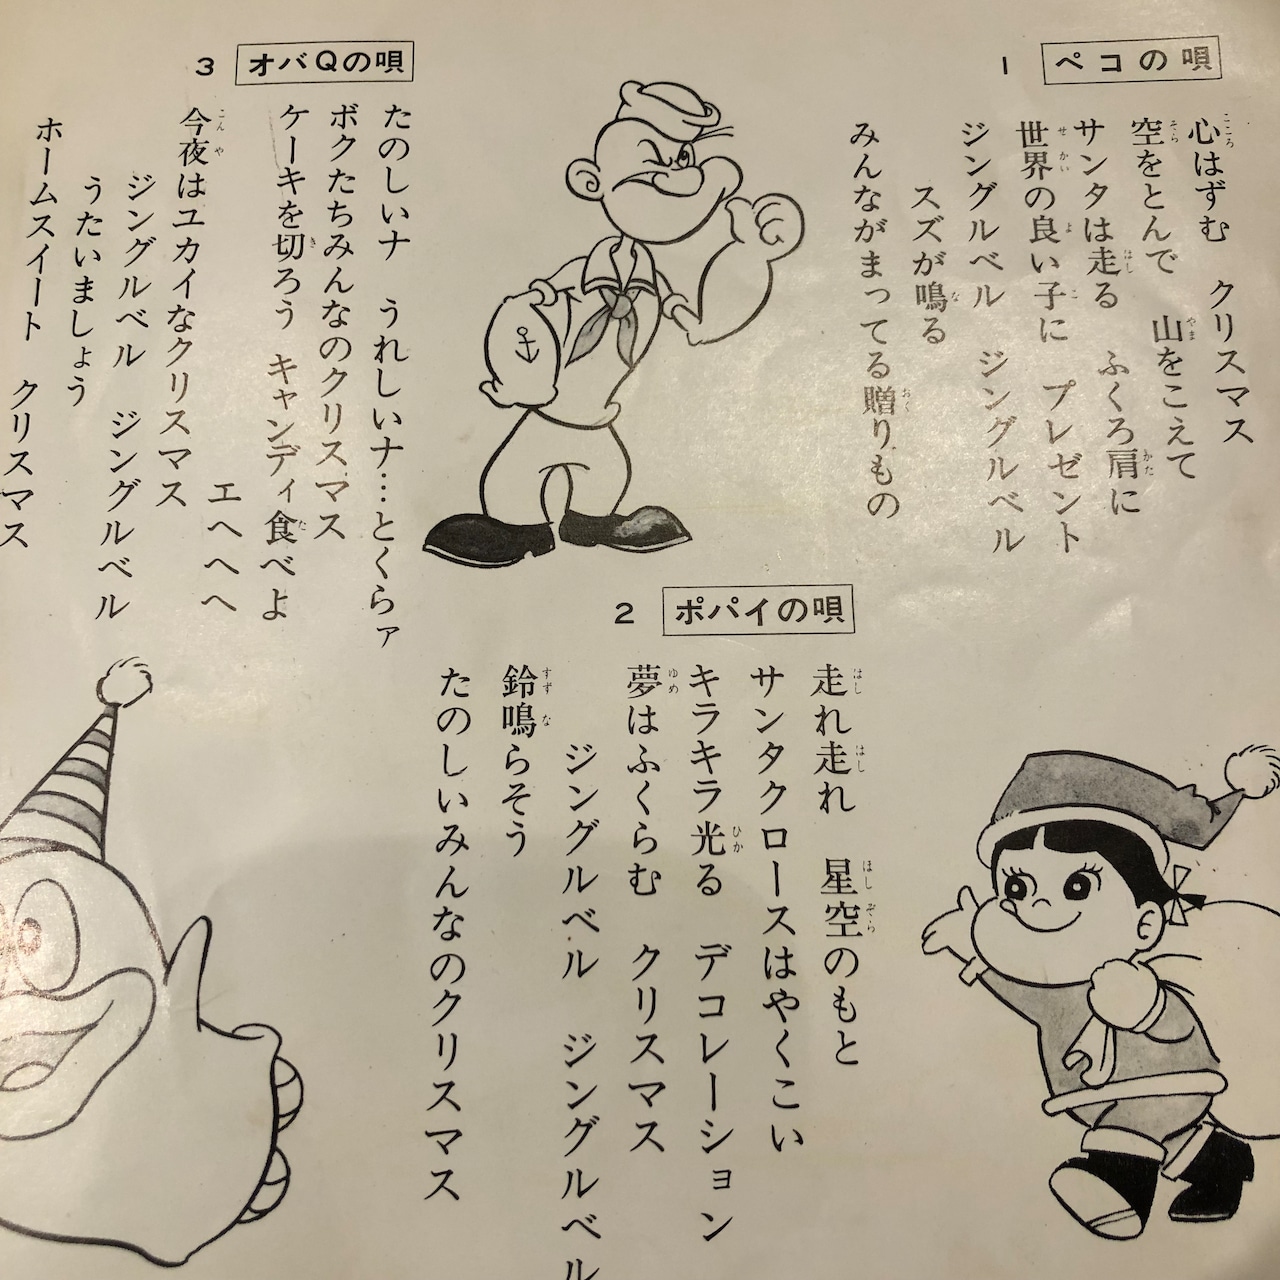 1 ペコの唄
心はずむ クリスマス
空をとんで 山をこえて
サンタは走る ふくろ肩に
世界の良い子に プレゼント
ジングルベル ジングルベル
スズが鳴る
みんながまってる贈りもの
2 ポパイの唄
走れ走れ 星空のもと
サンタクロースはやくこい
キラキラ光る デコレーション
夢はふくらむ クリスマス
ジングルベル ジングルベル
鈴鳴らそう
たのしいみんなのクリスマス
3 オバQの唄
たのしいナ うれしいナ…とくらァ
ボクたちみんなのクリスマス
ケーキを切ろう キャンディ食べよ
エヘヘヘ
今夜はユカイなクリスマス
ジングルベル ジングルベル
うたいましょう
ホームスイート クリスマス